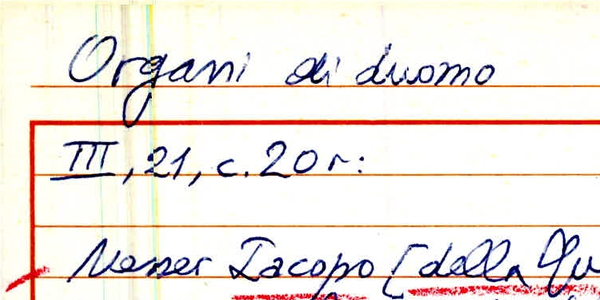 Organi di duomo
III, 21, c. 20 r:
Messer Iacopo [della